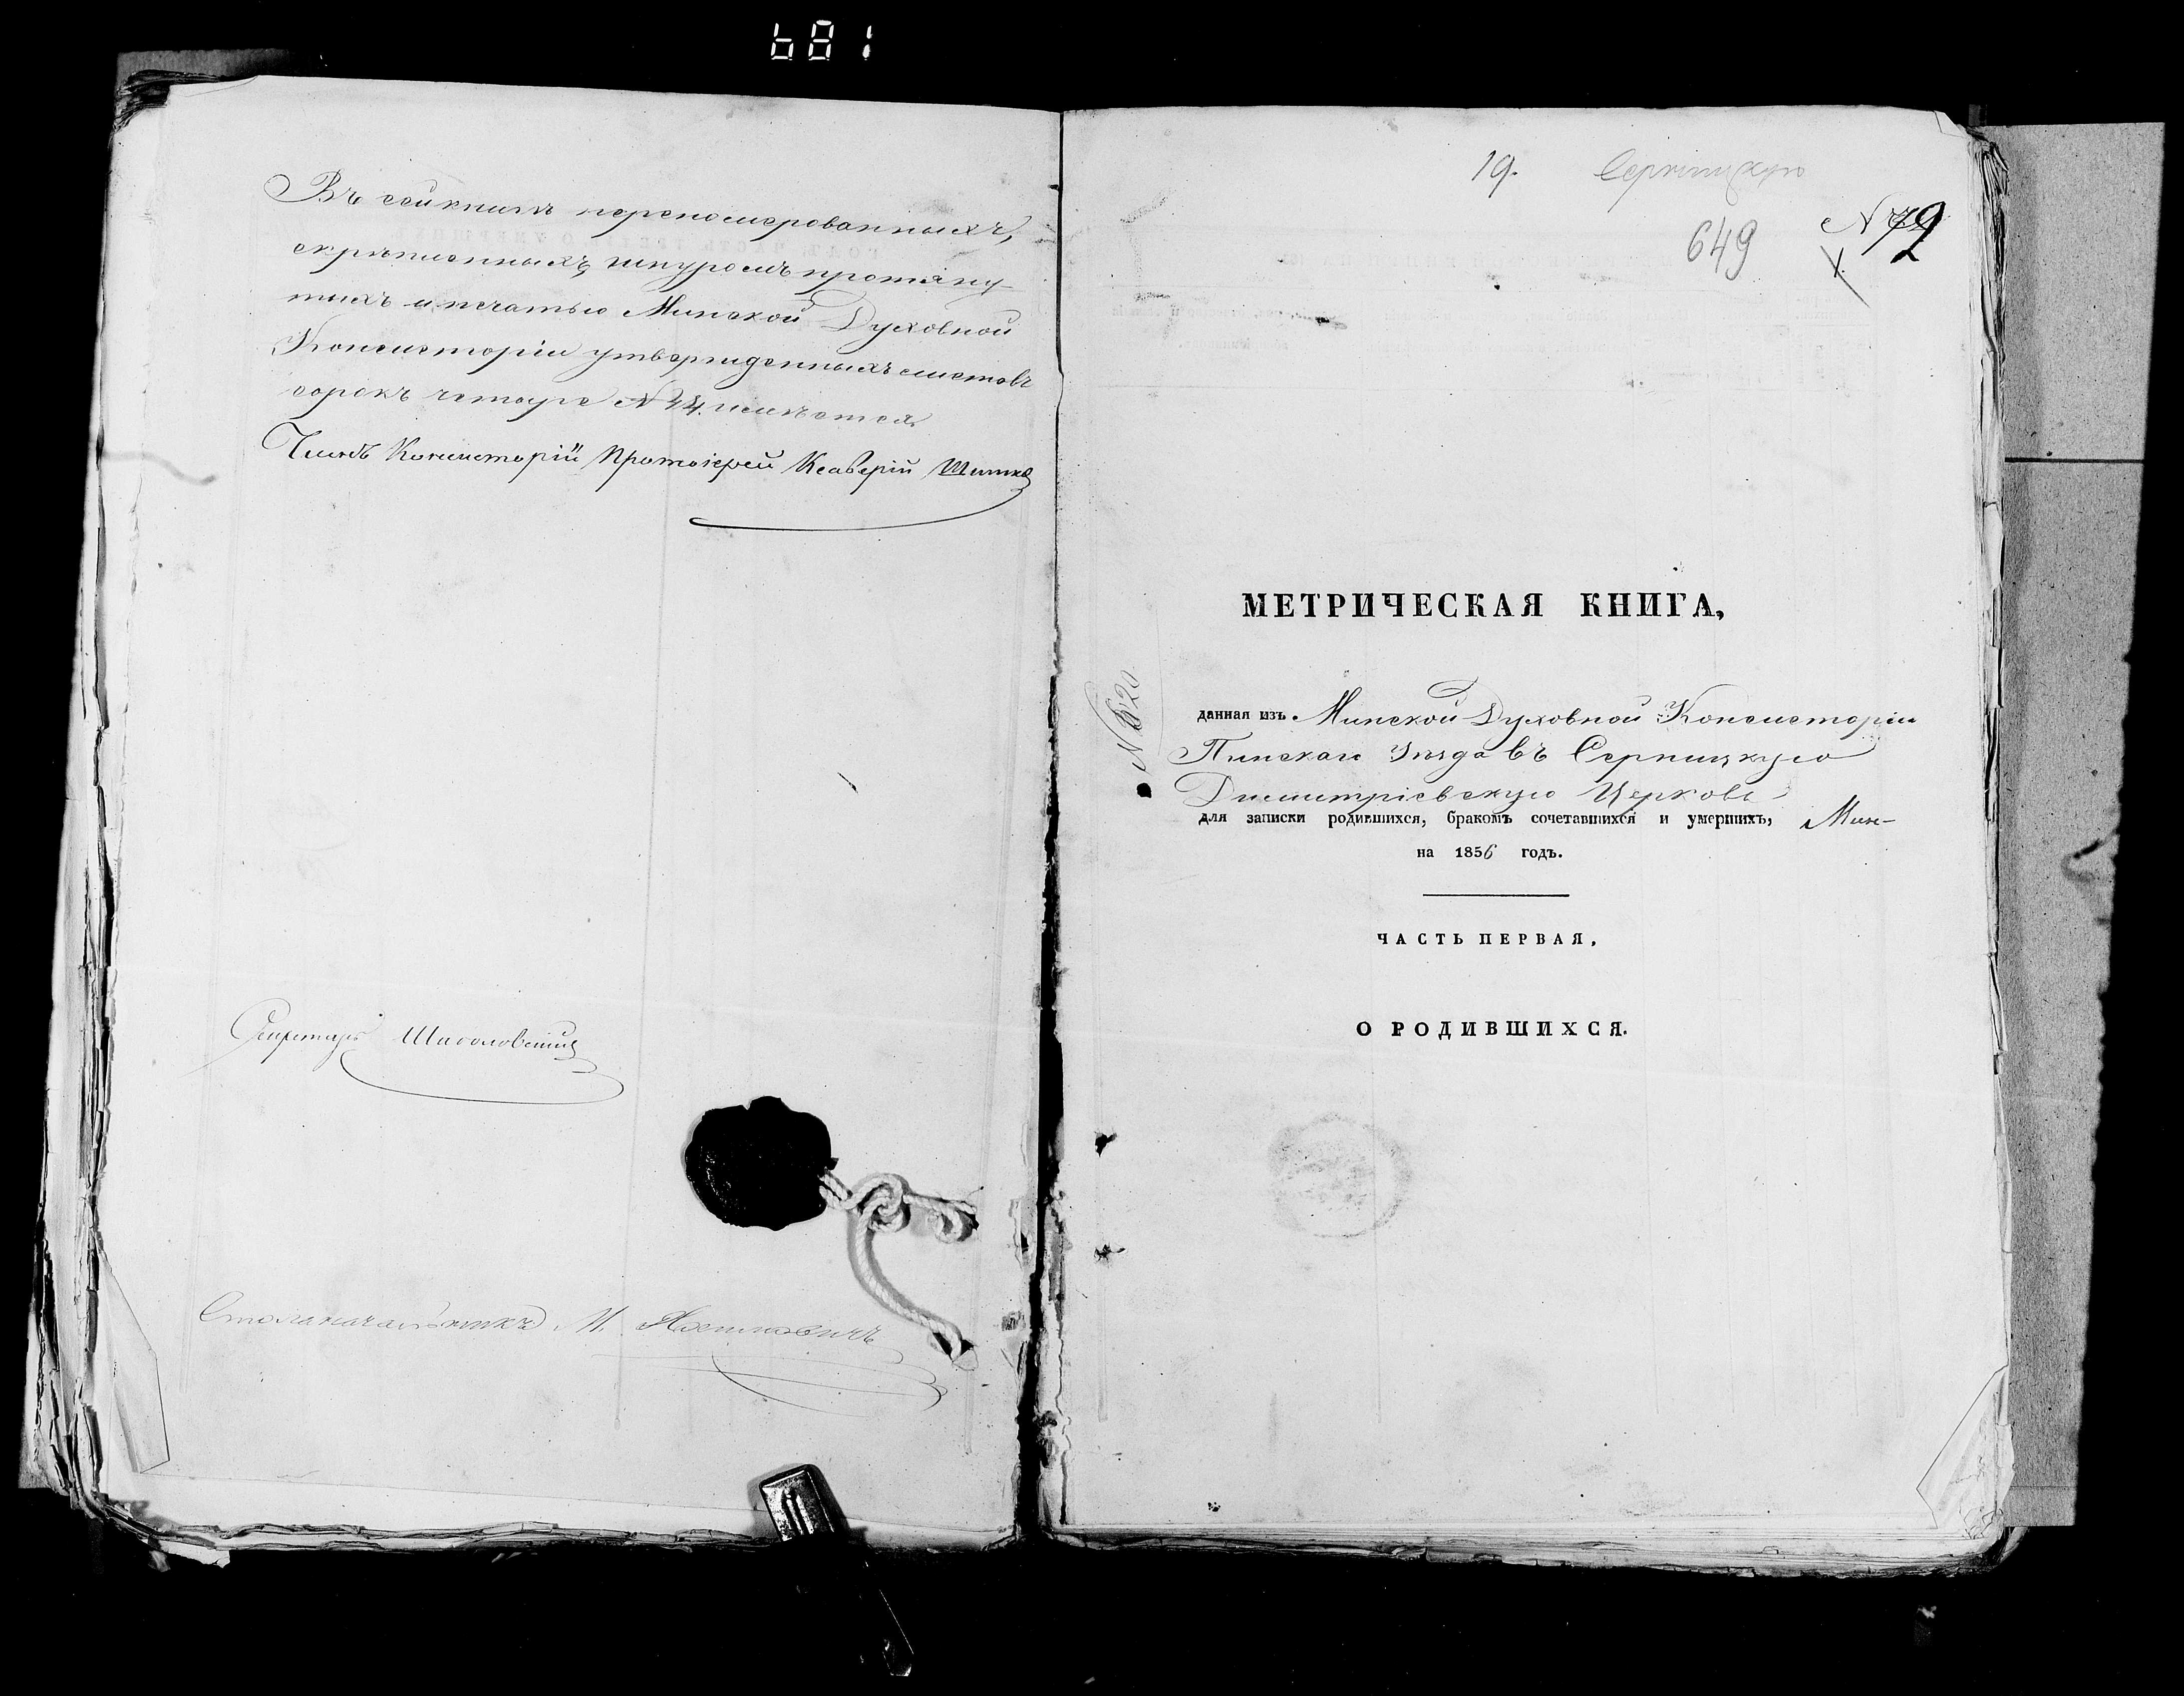 681
Въ сей книгѣ перенумерованныхъ,
скрѣпленныхъ, шнуромъ протяну-
тыхъ и печатью Минской Духовной
Консисторіи утвержденныхъ листовъ
сорокъ четыре № 44. имѣется.
Членъ Консисторіи Протоіерей Ксаверій
Секретарь
Столоначальникъ М.
19.
649
№ 79
№ 620
МЕТРИЧЕСКАЯ КНИГА,
данная изъ Минской Духовной Консисторіи
Пинскаго Уѣзда въ Серницкую
Димитріевскую Церковь
для записки родившихся, бракомъ сочетавшихся и умершихъ, Мин-
на 1856 годъ.
ЧАСТЬ ПЕРВАЯ,
О РОДИВШИХСЯ.